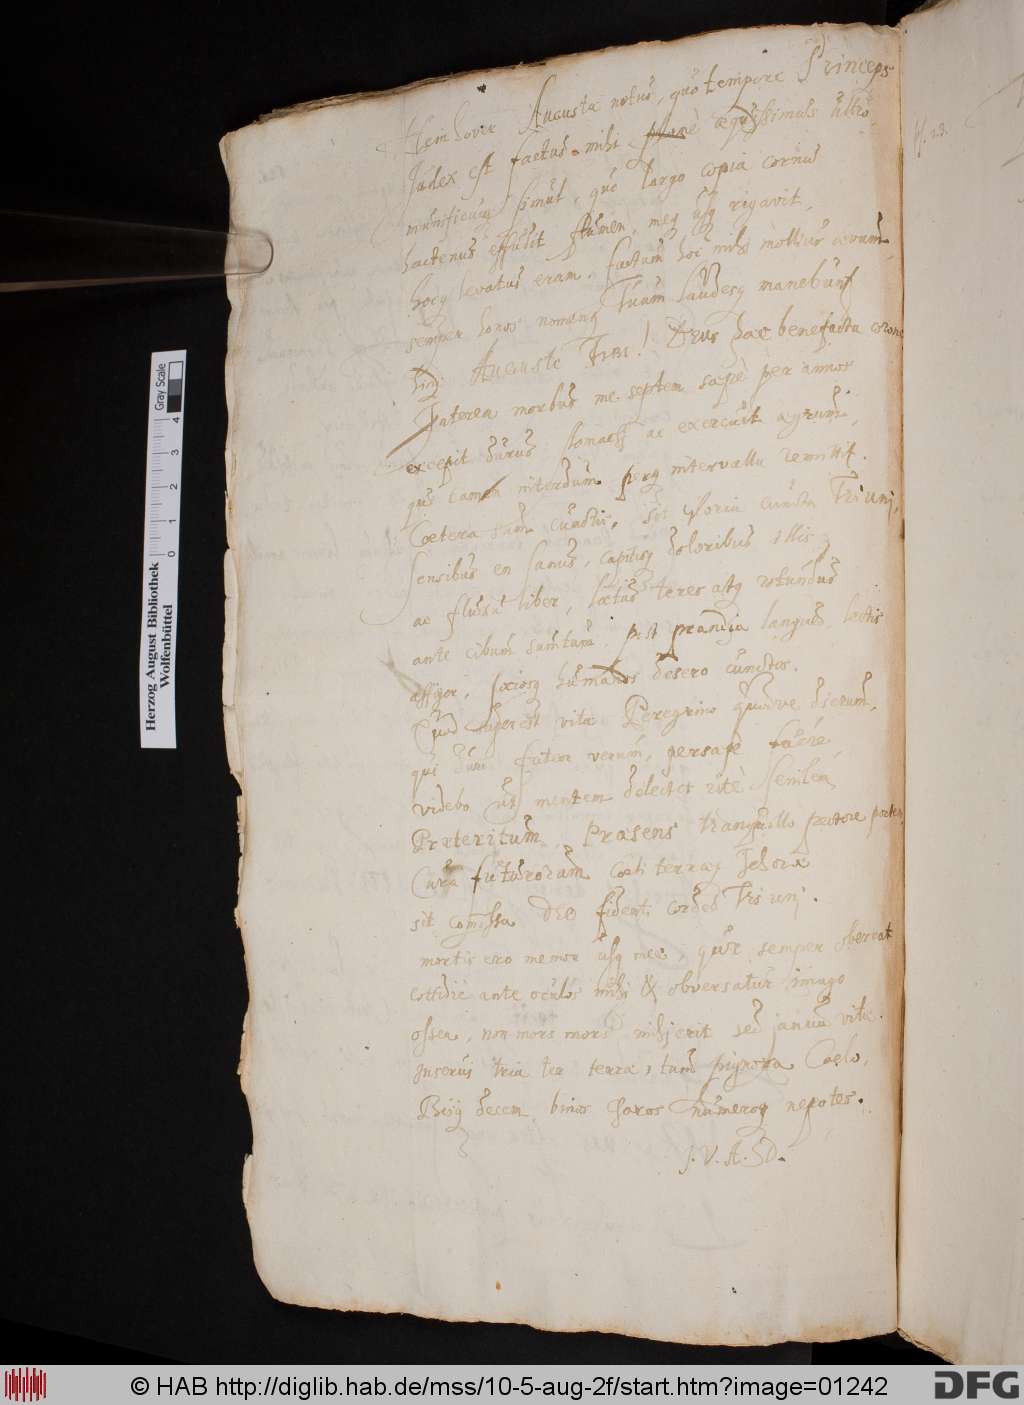 Augusta notus, quo tempore Princeps
Judex est factus mihi planè æquissimus ultro,
munificus simul, quo largo copia cornu
hactenus effudit flumen, meq usq rigavit,
hocq levatus eram. factum hoc mihi mollius ævum,
semper honos nomenq Tuum laudesq manebunt
Auguste Deus hæc benefacta
Interea morbus me septem sæpè per annos
excepit durus stomachi ac exercuit ægrum,
qui tamen interdum perq intervalla remittit.
Cœtera sum cunctis, sit gloria cuncta Triuni,
Sensibus en sanus, capitisq doloribus illis
ac fluxu liber, lætus teres atq rotundus
ante cibum sumtum, post prandia langueo, lectis
affigor, sociosq humanos desero cunctos.
Quod superest vitæ Peregrino quodve dierum,
qui dum fatear verum, persæpè
videbo ut mentem delectet ritè senilem
Præteritum. Præsens tranquillo pectore portem
Cura futurorum Cœli terræq Jehovæ
sit comissa DEO fidenti corde Triuni.
mortis ero memor usq meæ, quæ semper oberrat
cottidie ante oculos mihi & obversatur imago
ossea, non mors mors mihi erit sed janua vitæ.
Inserui tria ter terræ, tum pignora Cœlo,
Bisq decem binos charos numeroq nepotes.
J. V. A. D.
Herzog August Bibliothek
Wolfenbüttel
0 1 2 3 4
Gray Scale
© HAB http://diglib.hab.de/mss/10-5-aug-2f/start.htm?image=01242
DFG